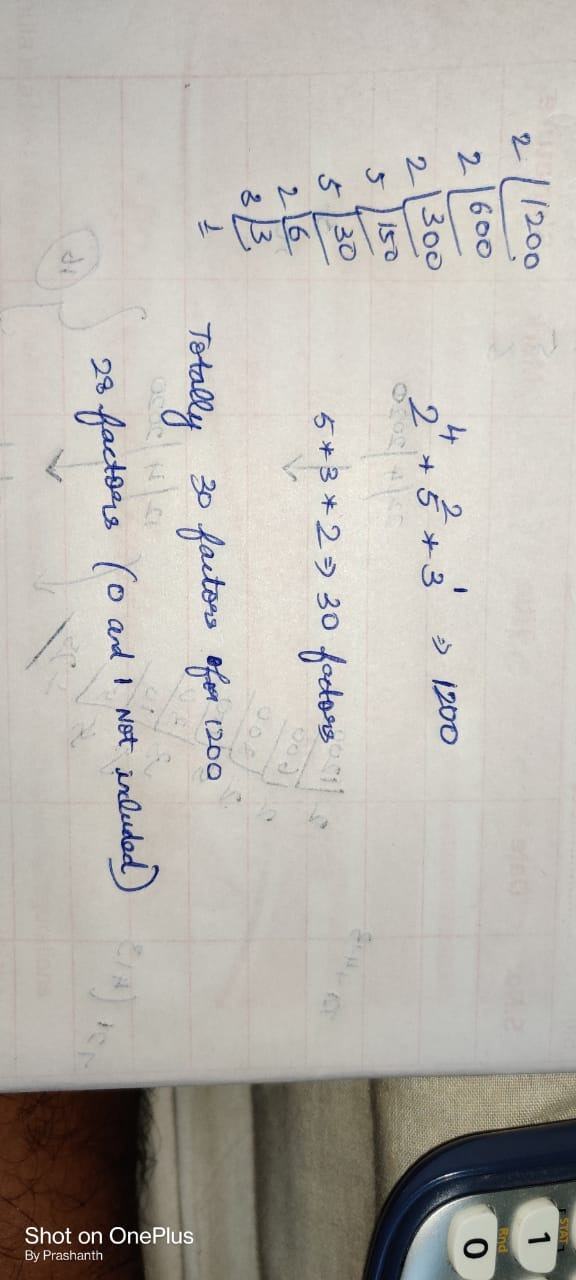 2 | 1200
2 | 600
2 | 300
5 | 150
5 | 30
2 | 6
3 | 3
1
2^4 * 5^2 * 3^1 => 1200
5 * 3 * 2 => 30 factors
Totally 30 factors for 1200
28 factors (0 and 1 Not included)
STAT
1
Rnd
0
Shot on OnePlus
By Prashanth